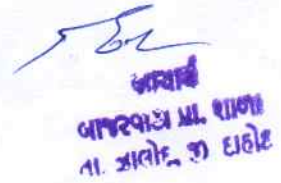 આચાર્ય
બાજરવાડા પ્રા. શાળા
તા. ઝાલોદ, જી દાહોદ